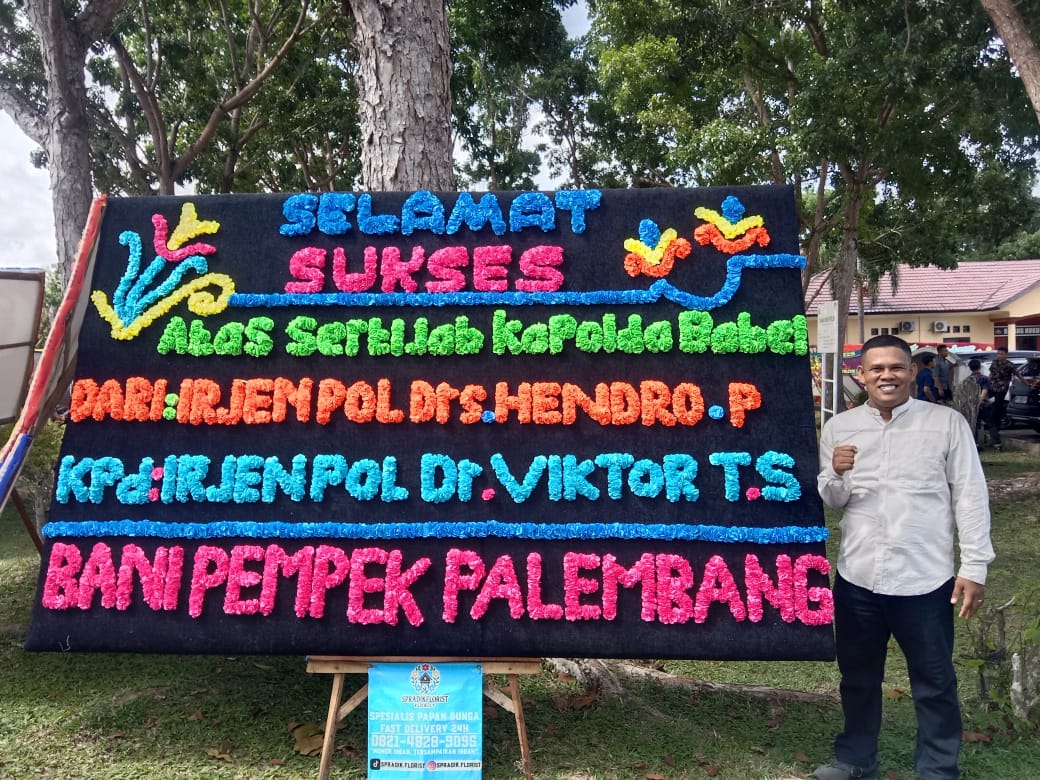 SELAMAT
SUKSES
Atas Sertijab Kapolda Babel
DARI:IRJEN POL Drs.HENDRO.P
KPd:IRJEN POL Dr.VIKToR T.S
BANI PEMPEK PALEMBANG
SPRADIK FLORIST
SPESIALIS PAPAN BUNGA
FAST DELIVERY 24H
0821-4828-9095
SPRADIK.FLORIST SPRADIK.FLORIST